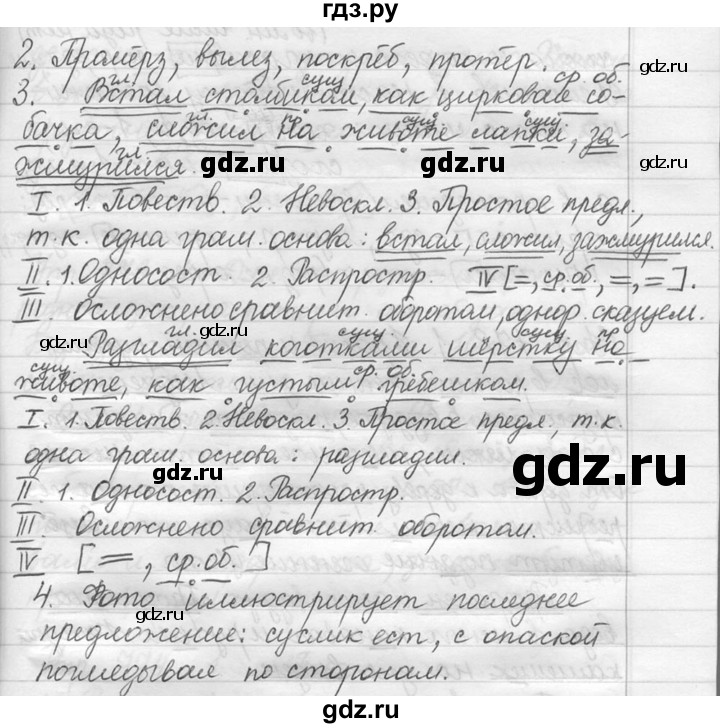 гдз.ру
2. Промёрз, вылез, поскрёб, протёр.
гл. сущ. ср. об.
3. Встал столбиком, как цирковая со-
гл. пр. сущ. сущ.
бачка, сложил на животе лапки, за-
гл.
жмурился.
gdz.ru gdz.ru
I. 1. Повеств. 2. Невоскл. 3. Простое предл.,
т.к. одна грам. основа: встал, сложил, зажмурился.
II. 1. Односост. 2. Распростр. IV [=, ср.об., =, =].
III Осложнено сравнит. оборотом, однор. сказуем.
gdz.ru гл. сущ. сущ. пр.
Разгладил коготками шёрстку на
сущ. ср. об.
животе, как густым гребешком.
I. 1. Повеств. 2. Невоскл. 3. Простое предл., т.к.
одна грам. основа: разгладил.
gdz.ru gdz.ru
II 1. Односост. 2. Распростр.
III. Осложнено сравнит. оборотом.
IV [=, ср.об.]
4. Фото иллюстрирует последнее
предложение: суслик ест, с опаской
поглядывая по сторонам.
gdz.ru gdz.ru